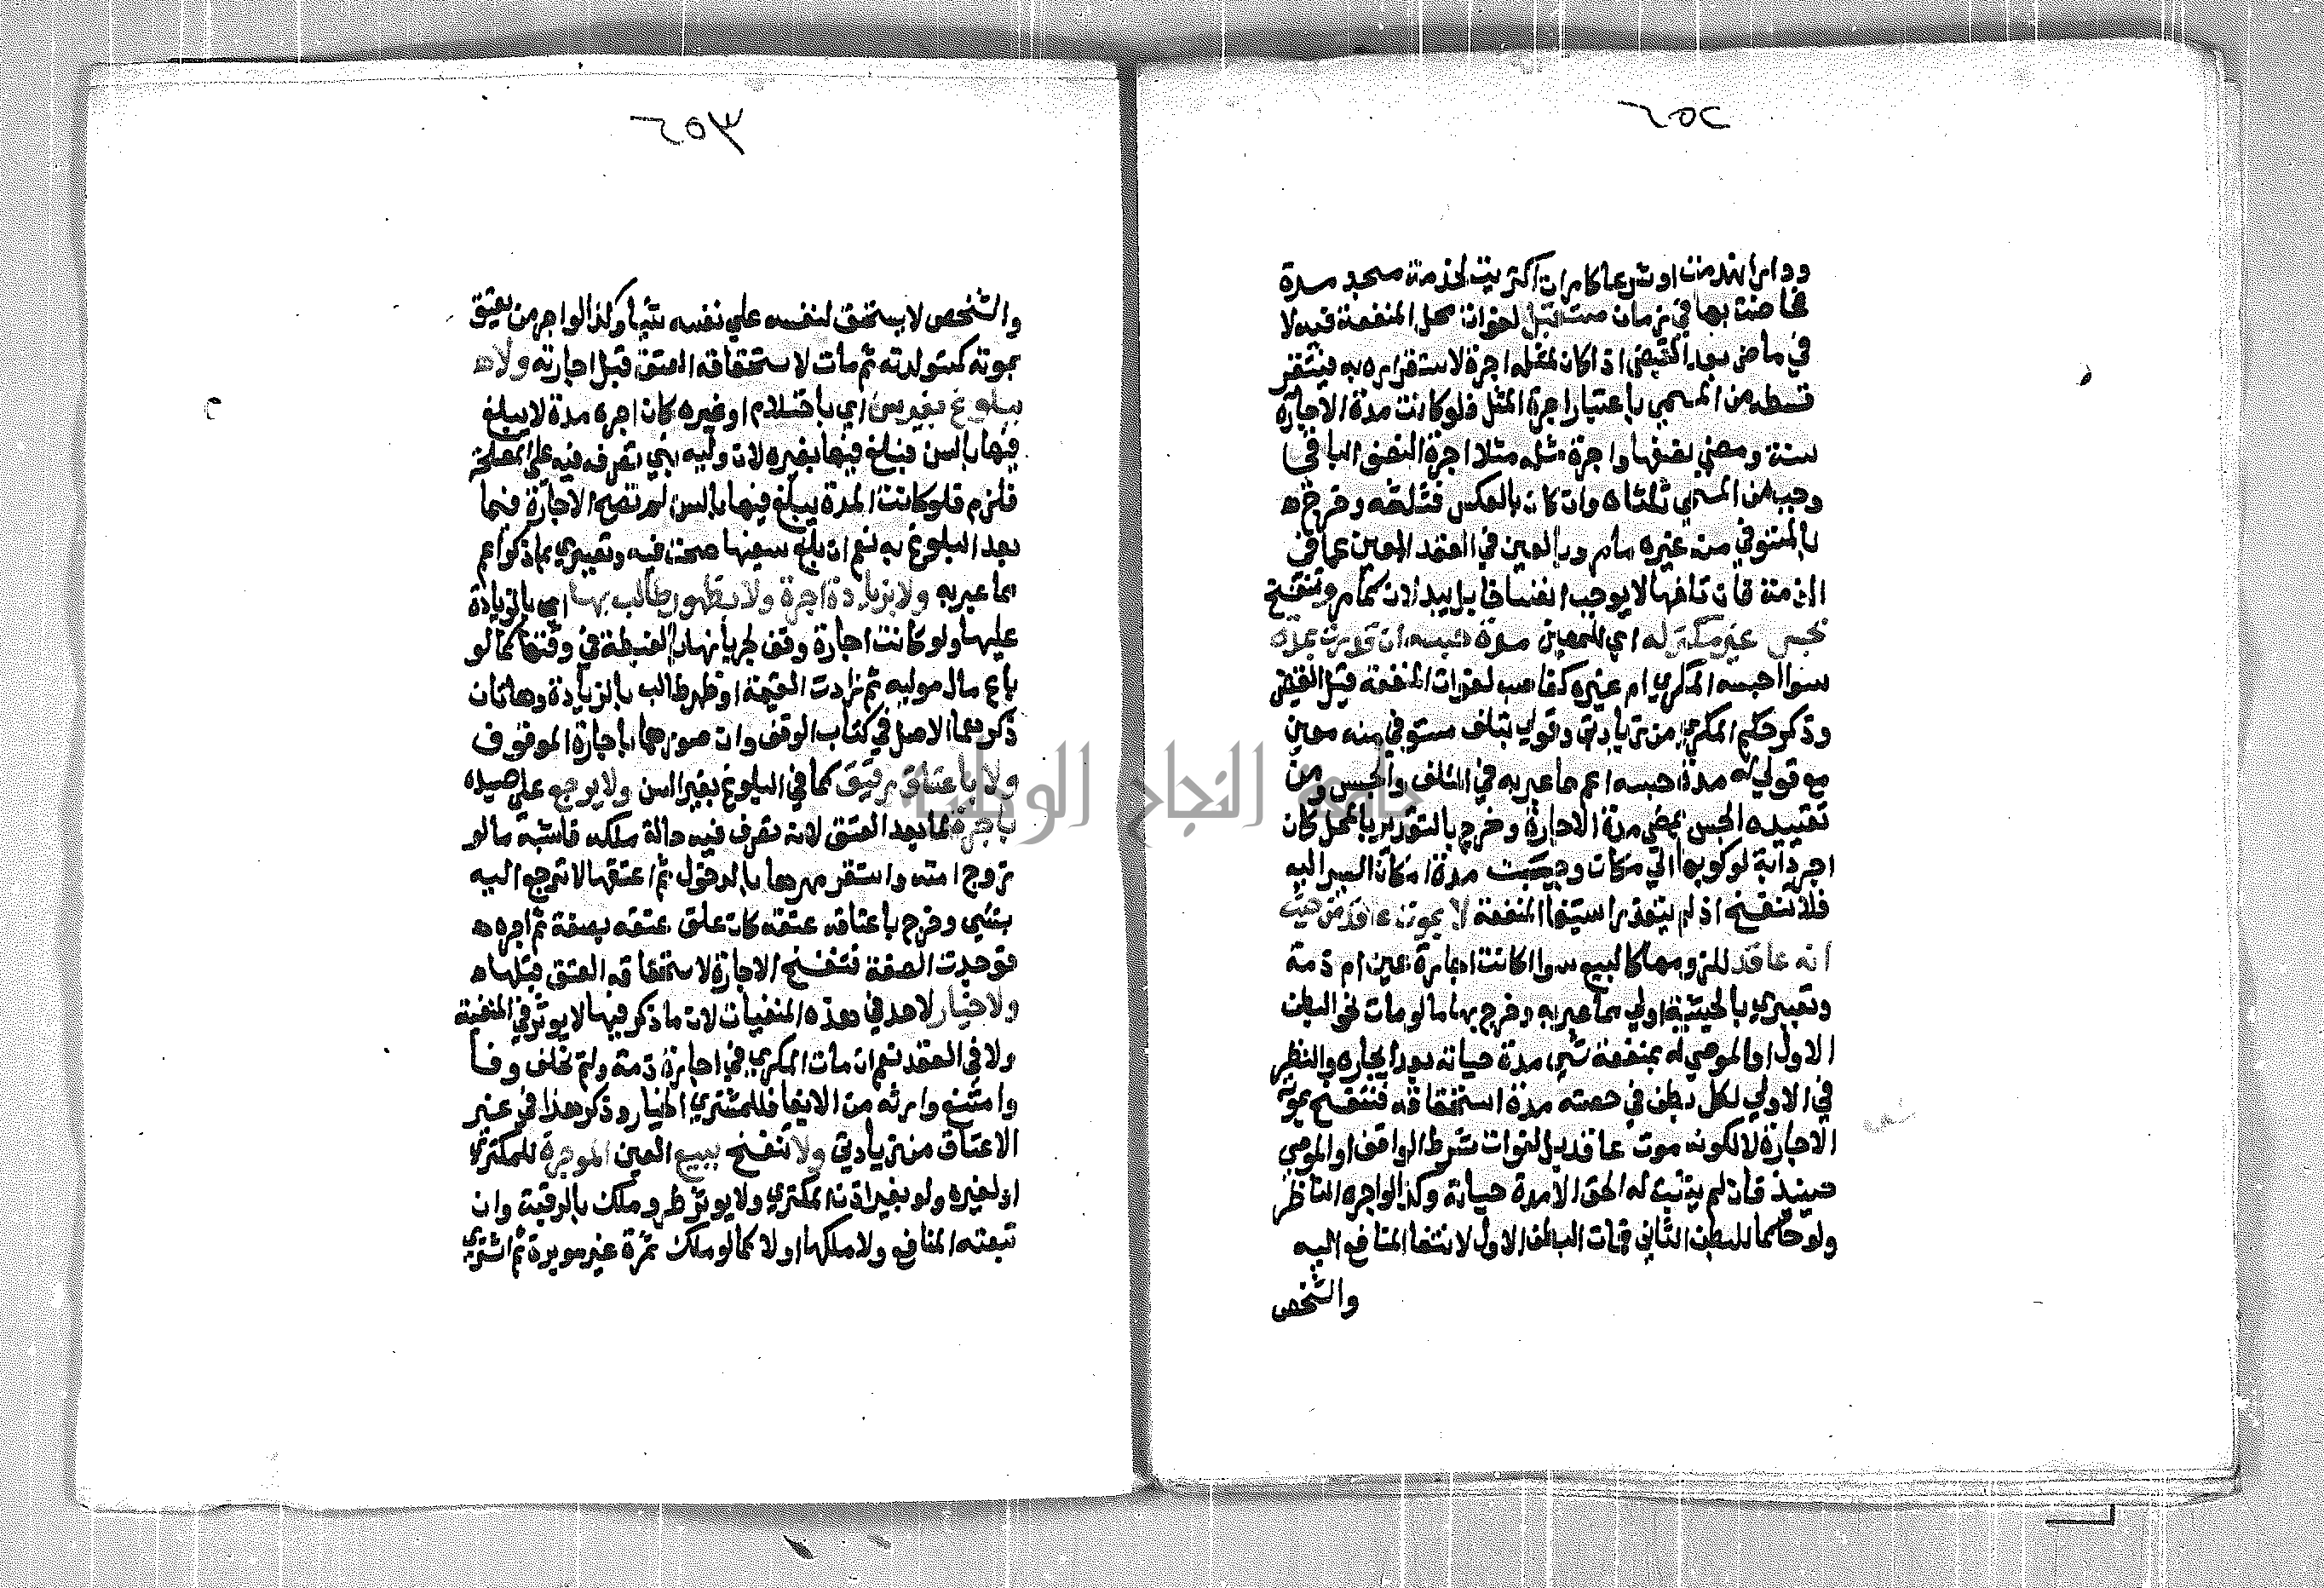 ٢٥٢
ودار انهدمت او شرعا كامراة اكتريت لخدمة مسجد مدة
فحاضت بها في زمان مستقبل لفوات محل المنفعة فيه لا
في ماض بعد القبض اذا كان لمثله اجرة لاستقراره به فيستقر
قسطه من المسمي باعتبار اجرة المثل فلو كانت مدة الاجارة
سنة ومضي نصفها واجرة مثله مثلا اجرة النصف الباقي
وجب من المسمي ثلثاه وان كان بالعكس فثلثه وخرج
بالمستوفي منه غيره مما مر وبالمعين في العقد المعين عما في
الذمة فان تلفهما لا يوجب انفساخا بل يبدلان كما مر وتنفسخ
بحبس غير مكتر له اي للمعين مدة حبسه ان قدرت بمدة
سوا احبسه المكري ام غيره كغاصب لفوات المنفعة قبل القبض
وذكر حكم المكري من زيادتي وقولي بتلف مستوفي منه معين
مع قولي له مدة حبسه اعم مما عبر به في التلف والحبس ومن
تقييده الحبس بمضي مدة الاجارة وخرج بالتقدير بالمحل كان
اجر دابة لركوبها الي مكان وحبست مدة امكان السير اليه
فلا تنفسخ اذ لم يتعذر استيفا المنفعة لا بموت عاقد من حيث
انه عاقد للزومها كالبيع سوا كانت اجارة عين ام ذمة
وتعبيري بالحيثية اولي مما عبر به وخرج بها ما لو مات نحو البطن
الاول او الموصي له بمنفعة شي مدة حياته بعد ايجاره والنظر
في الاولي لكل بطن في حصته مدة استحقاقه فتنفسخ بموته
الاجارة لا لكونه موت عاقد بل لفوات شرط الواقف او الموصي
حينيذ فان لم يثبت له الحق الا مدة حياته وكذا لو اجره الناظر
ولو حاكما للبطن الثاني فمات البطن الاول لانتقا المنافع اليه
والشخص
٢٥٣
والشخص لا يستحق لنفسه علي نفسه شيا وكذا لو اجر من يعتق
بموته كمستولدته ثم مات لاستحقاقه العتق قبل اجارته ولا
ببلوغ بغير سن اي باحتلام او غيره كان اجره مدة لا يبلغ
فيها بالسن فبلغ فيها بغيره لان وليه بني تصرفه فيه علي المصلحة
فلزم فلو كانت المدة يبلغ فيها بالسن لم تصح الاجارة فيما
بعد البلوغ به نعم ان بلغ سفيها صحت فيه وتعبيري بما ذكر اعم
مما عبر به ولا بزيادة اجرة ولا بظهور طالب بها اي بالزيادة
عليها ولو كانت اجارة وقف لجريانها بالغبطة في وقتها كما لو
باع مال موليه ثم زادت القيمة او ظهر طالب بالزيادة وهاتان
ذكرهما الاصل في كتاب الوقف وان صورهما باجارة الموقوف
ولا باعتاق رقيق كما في البلوغ بغير السن ولا يرجع علي سيده
باجرة لما بعد العتق لانه تصرف فيه حالة ملكه فاشبه ما لو
تزوج امته واستقر مهرها بالدخول ثم اعتقها لا ترجع اليه
بشي وخرج باعتاقه عتقه كان علق عتقه بصفة ثم اجره
فوجدت الصفة فتنفسخ الاجارة لاستحقاقه العتق قبلها
ولا خيار لاحد في هذه المنفيات لان ما ذكر فيها لا يوثر في المنفعة
ولا في العقد نعم ان مات المكري في اجارة ذمة ولم يخلف وفا
وامتنع وارثه من الايفا فللمكتري الخيار وذكر هذا في غير
الاعتاق من زيادتي ولا تنفسخ ببيع العين الموجرة للمكتري
او لغيره ولو بغير اذن المكتري ولا يوثر طرو ملك بالرقبة وان
تبعته المنافع ولا ملكها اولا كما لو ملك ثمرة غير موبرة ثم اشتري
جامعة النجاح الوطنية